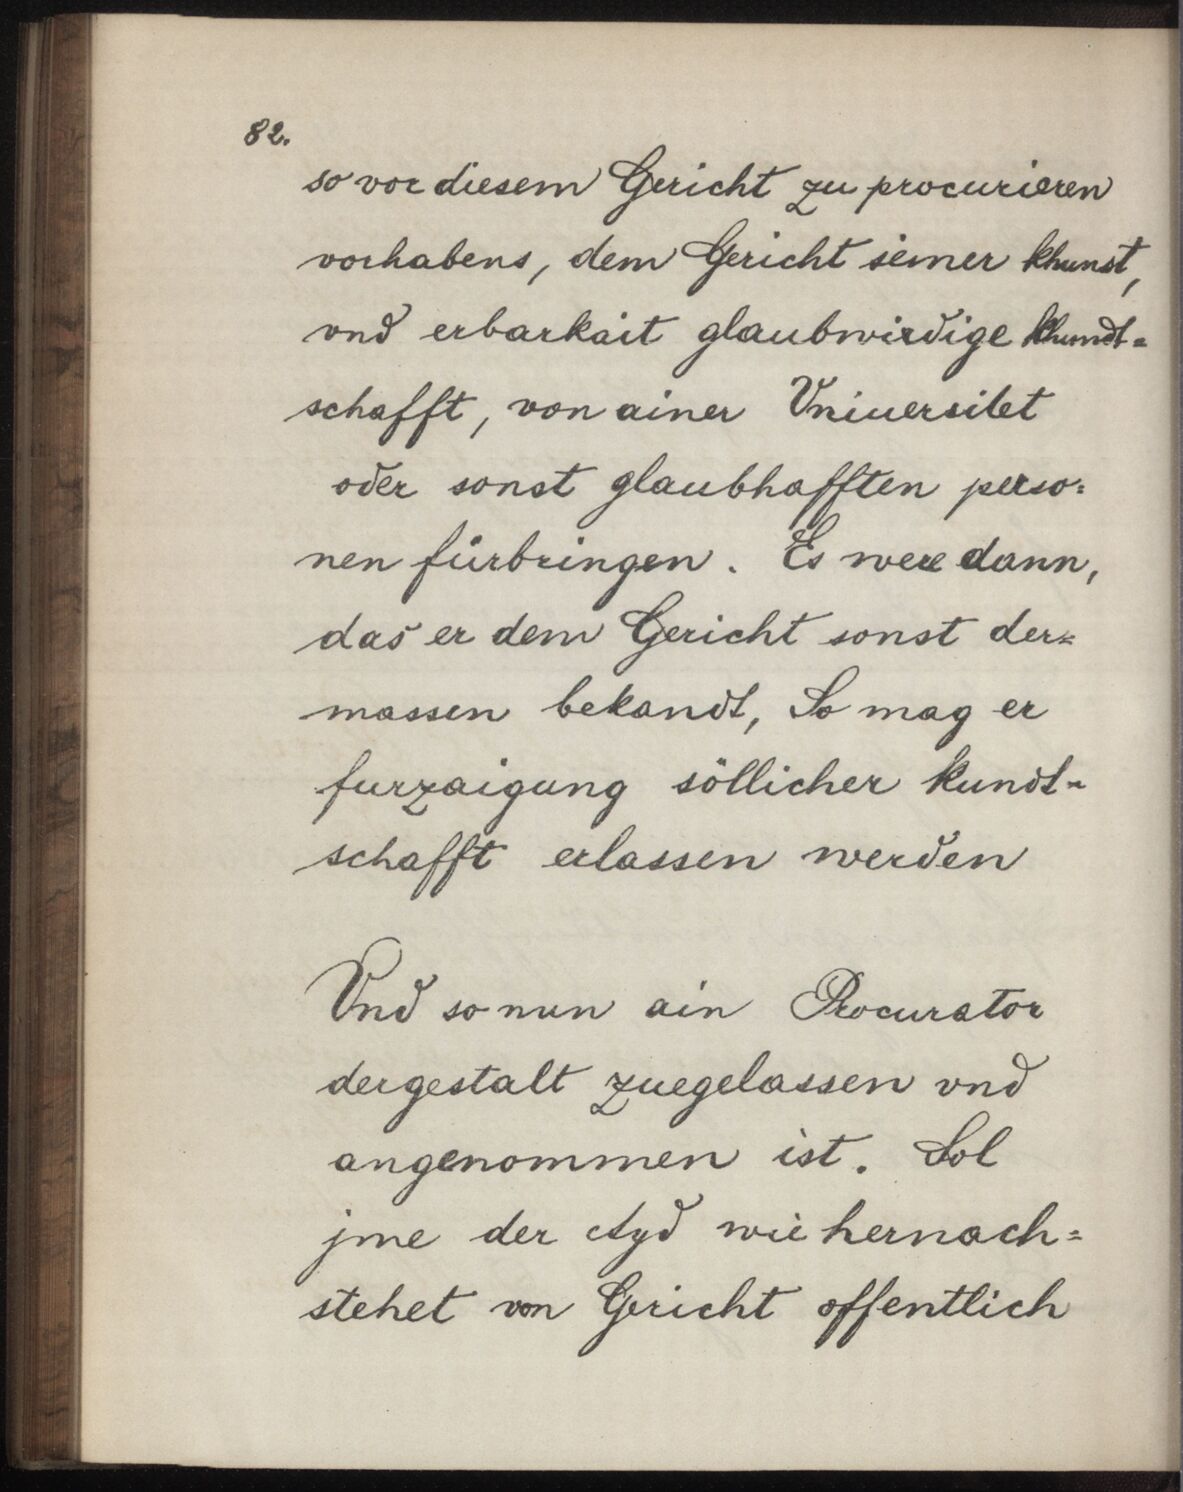 82.
so vor diesem Gericht zu procurieren
vorhabens, dem Gericht seiner khunst,
vnd erbarkait glaubwirdige khundt=
schafft, von ainer Vniuersitet
oder sonst glaubhafften perso=
nen fürbringen. Es were dann,
das er dem Gericht sonst der=
massen bekandt, So mag er
furzaigung söllicher kundt=
schafft erlassen werden
Vnd so nun ain Procurator
dergestalt zuegelassen vnd
angenommen ist. Sol
jme der Ayd wie hernach=
stehet von Gericht offentlich